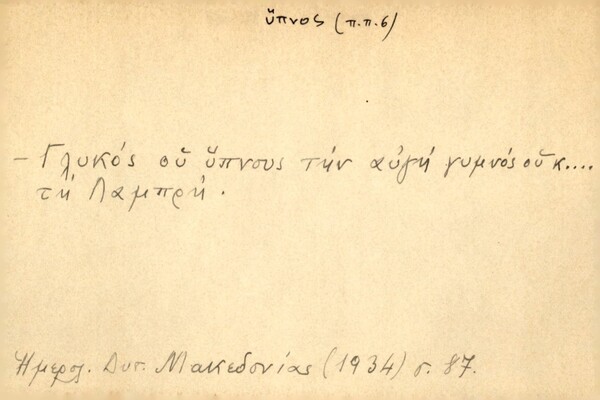 ὕπνος (π.π.6)
– Γλυκός οὗ ὕπνους τήν αὐγή γυμνός οὗ κ....
τή Λαμπρή.
Ἡμερολ. Δυτ. Μακεδονίας (1934) σ. 87.